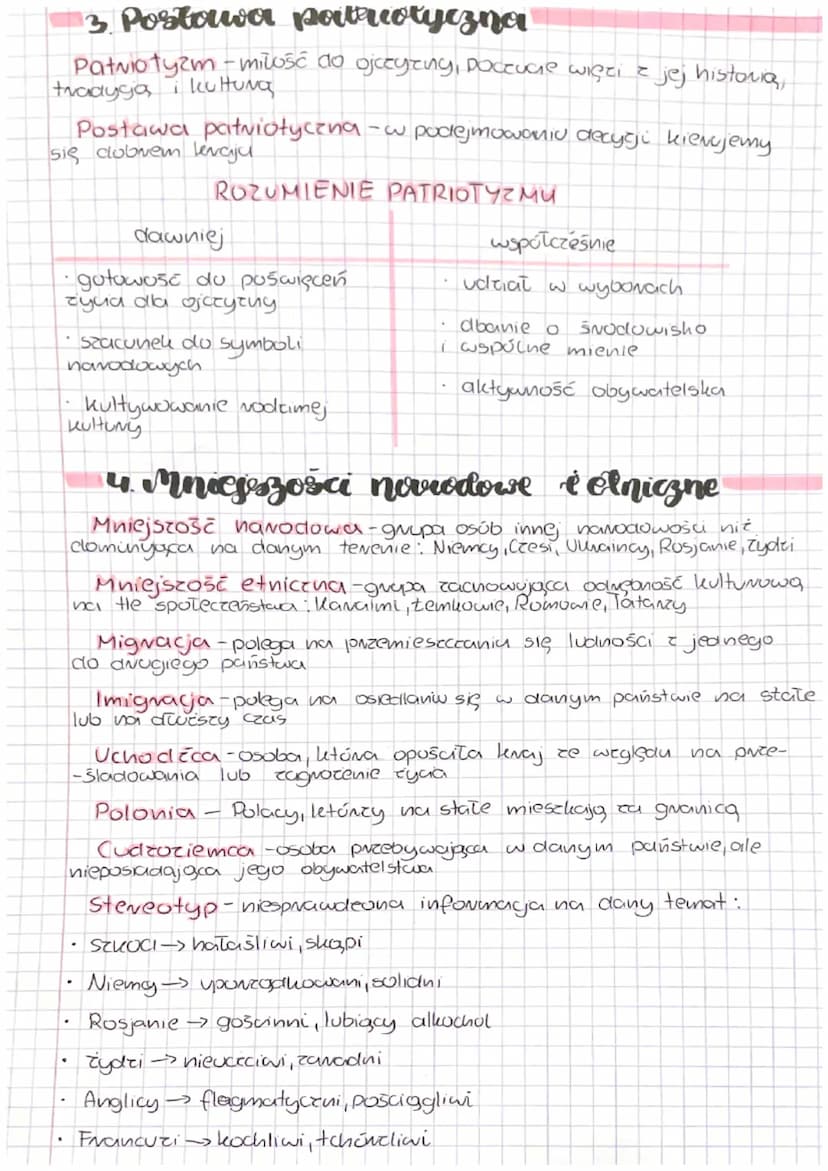 3. Postawa patriotyczna
Patriotyzm – miłość do ojczyzny, poczucie więzi z jej historią,
tradycją i kulturą
Postawa patriotyczna – w podejmowaniu decyzji kierujemy
się dobrem kraju
ROZUMIENIE PATRIOTYZMU
dawniej
współcześnie
· gotowość do poświęceń
życia dla ojczyzny
· szacunek do symboli
narodowych
· kultywowanie rodzimej
kultury
· udział w wyborach
· dbanie o środowisko
i wspólne mienie
· aktywność obywatelska
4. Mniejszości narodowe i etniczne
Mniejszość narodowa – grupa osób innej narodowości niż
dominująca na danym terenie: Niemcy, Czesi, Ukraincy, Rosjanie, Żydzi
Mniejszość etniczna – grupa zachowująca odrębność kulturową
na tle społeczeństwa: Karaimi, Łemkowie, Romowie, Tatarzy
Migracja – polega na przemieszczaniu się ludności z jednego
do drugiego państwa
Imigracja – polega na osiedlaniu się w danym państwie na stałe
lub na dłuższy czas
Uchodźca – osoba, która opuściła kraj ze względu na prze-
-śladowania lub zagrożenie życia
Polonia – Polacy, którzy na stałe mieszkają za granicą
Cudzoziemca – osoba przebywająca w danym państwie, ale
nieposiadająca jego obywatelstwa
Stereotyp – niesprawdzona informacja na dany temat:
· Szkoci → hałaśliwi, skąpi
· Niemcy → uporządkowani, solidni
· Rosjanie → gościnni, lubiący alkohol
· Żydzi → nieuczciwi, zaradni
· Anglicy → flegmatyczni, pościągliwi
· Francuzi → kochliwi, tchórzliwi